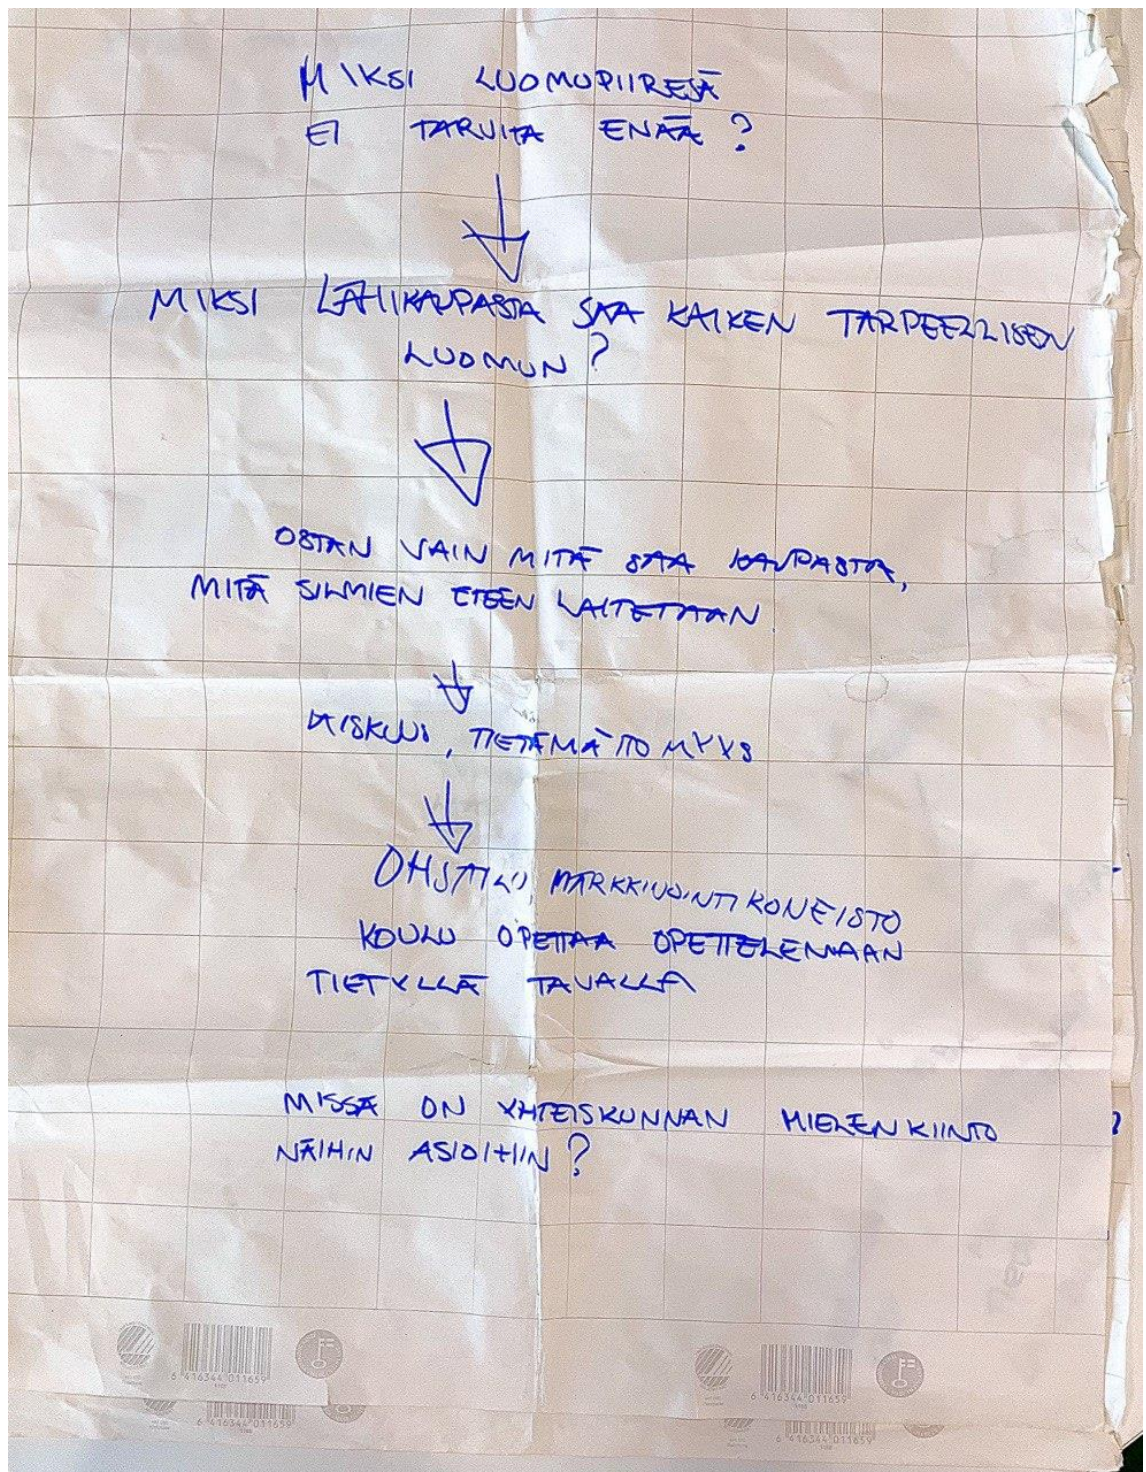 MIKSI LUOMUPIIREJÄ
EI TARVITA ENÄÄ?
MIKSI LÄHIKAUPASTA SAA KAIKEN TARPEELLISEN
LUOMUN?
OSTAN VAIN MITÄ SAA KAUPASTA,
MITÄ SILMIEN ETEEN LAITETAAN
LAISKUUS, TIETÄMÄTTÖMYYS
OHJAILU, MARKKINOINTIKONEISTO
KOULU OPETTAA OPETTELEMAAN
TIETYLLÄ TAVALLA
MISSÄ ON YHTEISKUNNAN MIELENKIINTO
NÄIHIN ASIOIHIN?
6 416344 011659
6 416344 011659
6 416344 011659
6 416344 011659